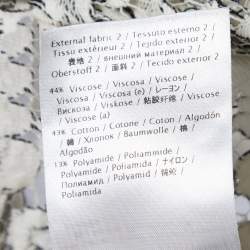 External fabric 2 / Tessuto esterno 2 /
Tissu extérieur 2 / Tejido exterior 2 /
表地 2 / внешний материал 2 /
Oberstoff 2 / 面料 2 / Tecido exterior 2
44% Viscose / Viscosa / Viscose /
Viscosa / Viscosa (e) / レーヨン /
Вискоза / Viskose / 粘胶纤维 / Viscose /
Viscose (a)
43% Cotton / Cotone / Coton / Algodón
/ 綿 / Хлопок / Baumwolle / 棉 /
Algodão
13% Polyamide / Poliammide /
Polyamide / Poliamida / ナイロン /
Полиамид / Polyamid / 锦纶 /
Poliamida